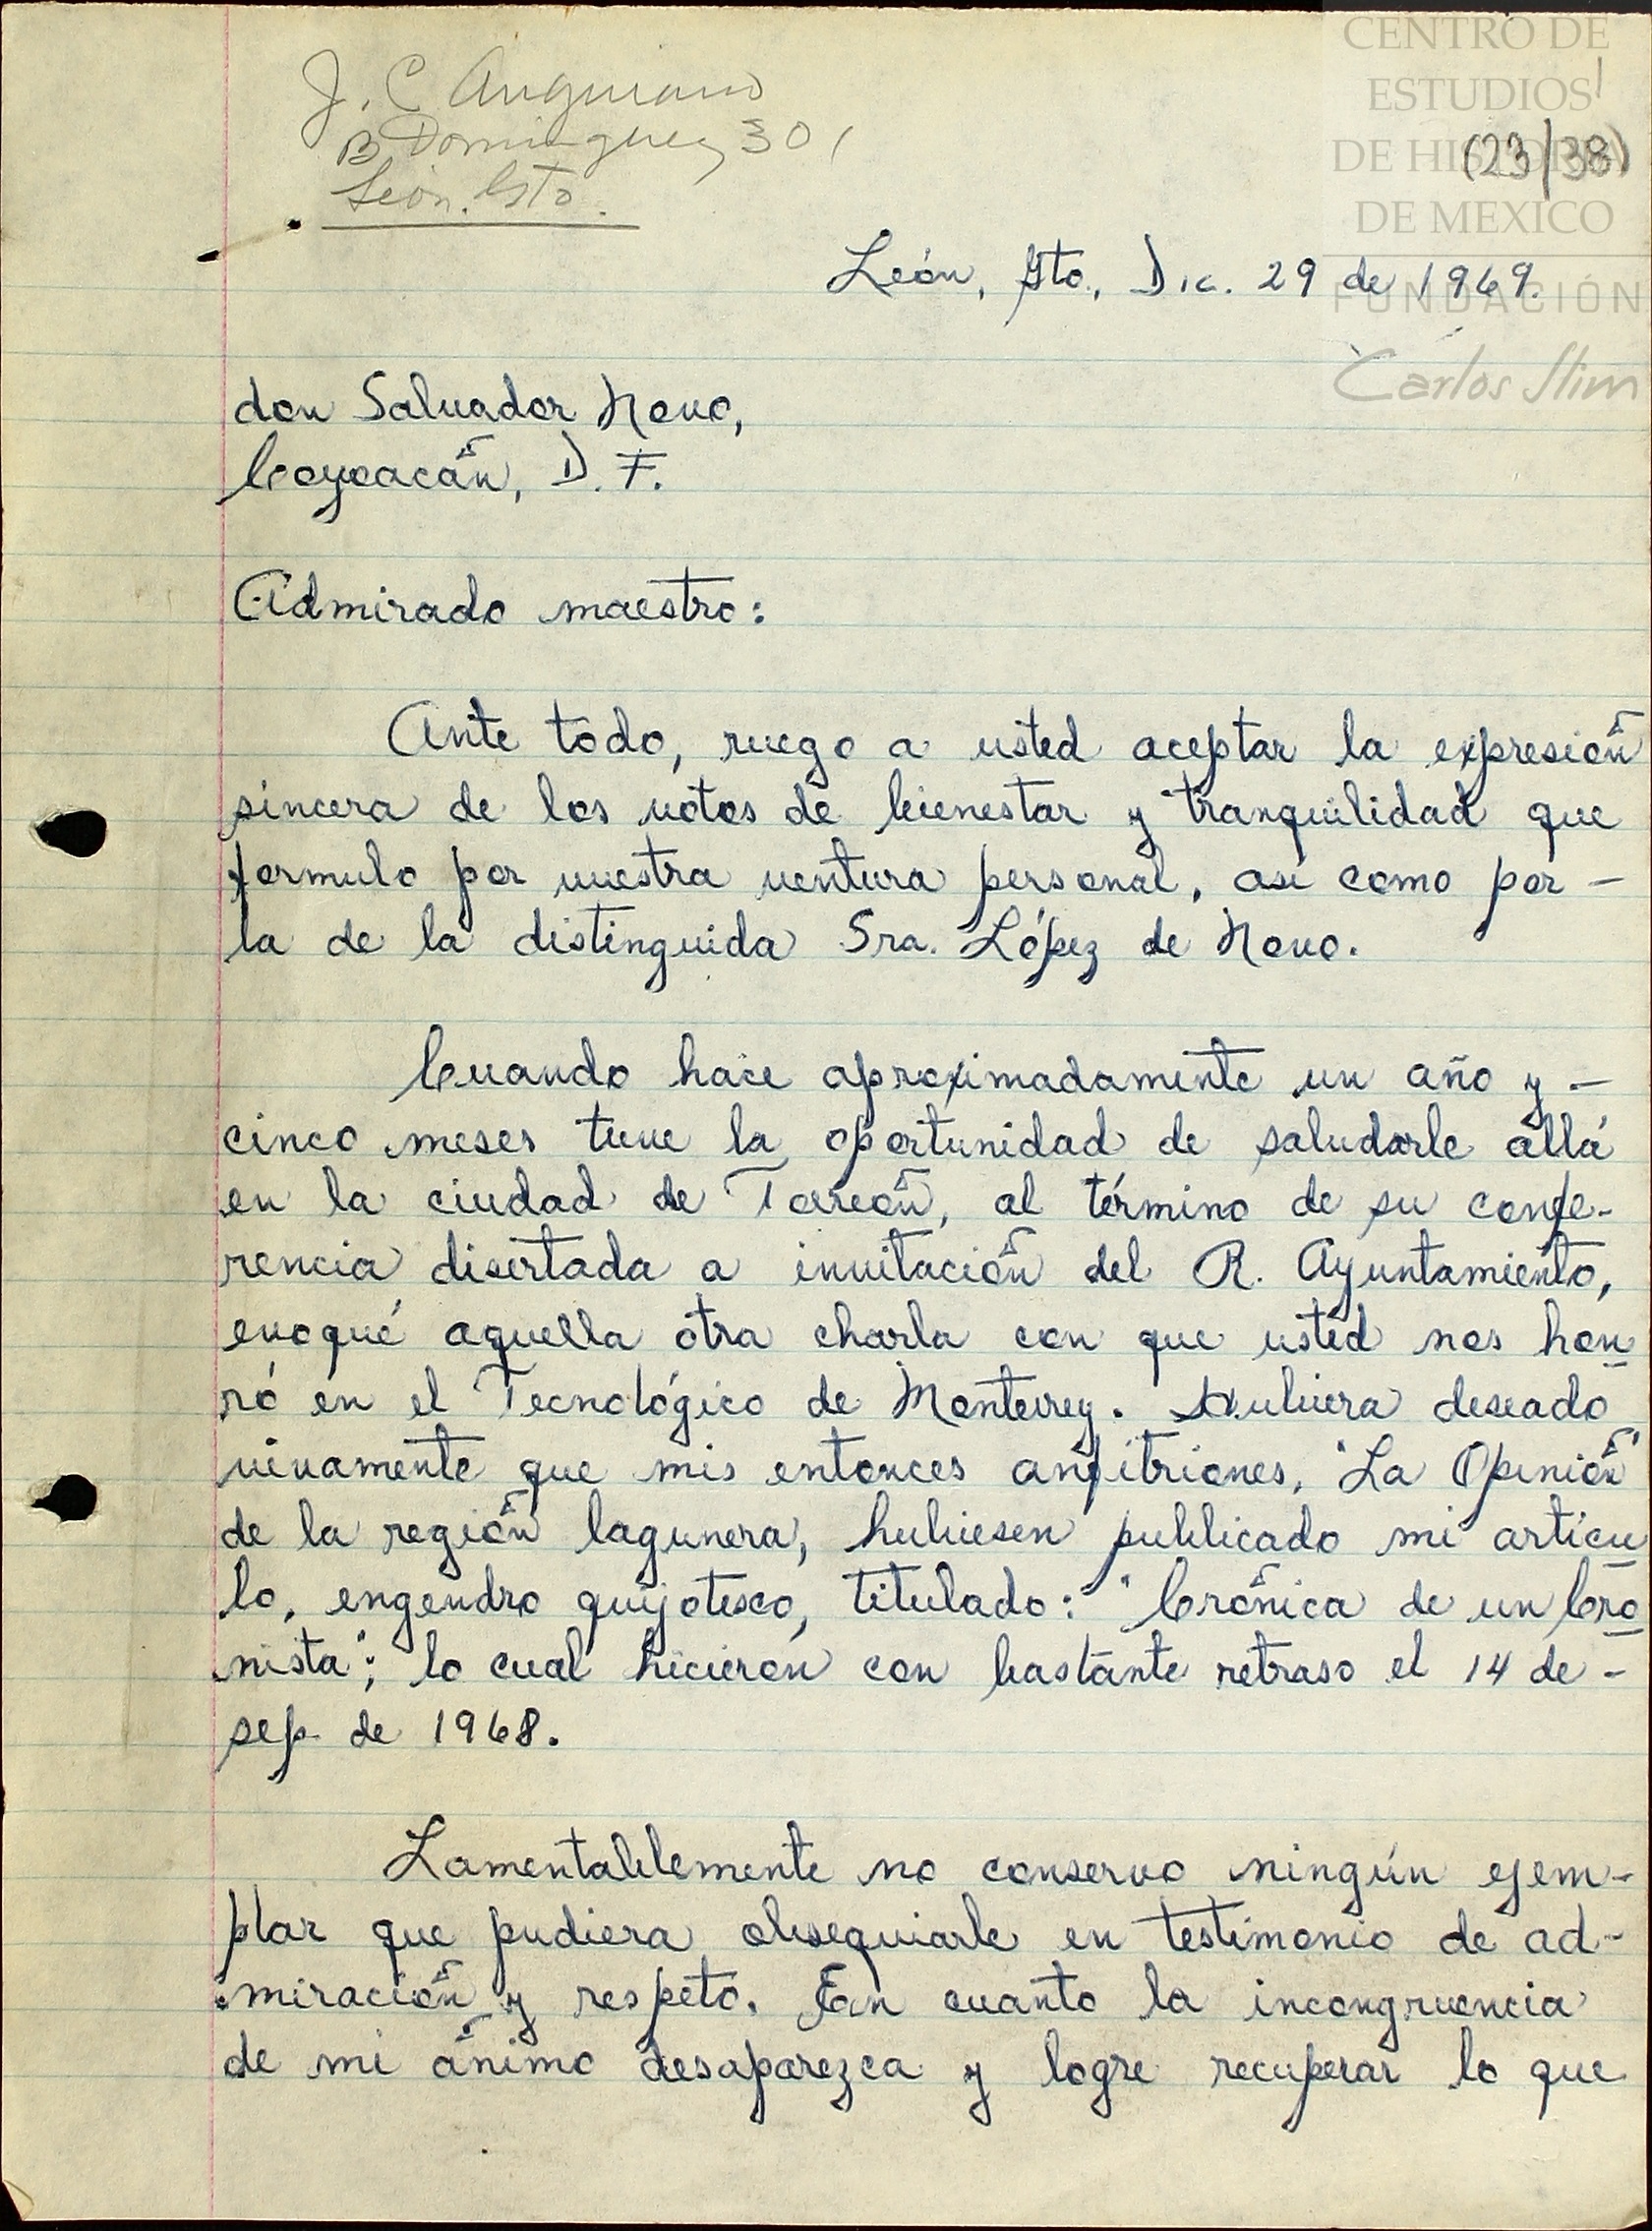 J. C Anguiano
B Dominguez 301
León. Gto.
CENTRO DE
ESTUDIOS
DE HISTORIA
DE MEXICO
FUNDACIÓN
Carlos Slim
1
(23/38)
León, Gto., Dic. 29 de 1969.
don Salvador Novo,
Coyoacán, D. F.
Admirado maestro:
Ante todo, ruego a usted aceptar la expresión
sincera de los votos de bienestar y tranquilidad que
formulo por vuestra ventura personal, así como por -
la de la distinguida Sra. López de Novo.
Cuando hace aproximadamente un año y -
cinco meses tuve la oportunidad de saludarle allá
en la ciudad de Torreón, al término de su confe-
rencia disertada a invitación del R. Ayuntamiento,
evoqué aquella otra charla con que usted nos hon
ró en el Tecnológico de Monterrey. Hubiera deseado
vivamente que mis entonces anfitriones, "La Opinión"
de la región lagunera, hubiesen publicado mi artícu
lo, engendro quijotesco, titulado: "Crónica de un Cro
nista"; lo cual hicieron con bastante retraso el 14 de -
sep. de 1968.
Lamentablemente no conservo ningún ejem-
plar que pudiera obsequiarle en testimonio de ad-
miración y respeto. En cuanto la incongruencia
de mi ánimo desaparezca y logre recuperar lo que